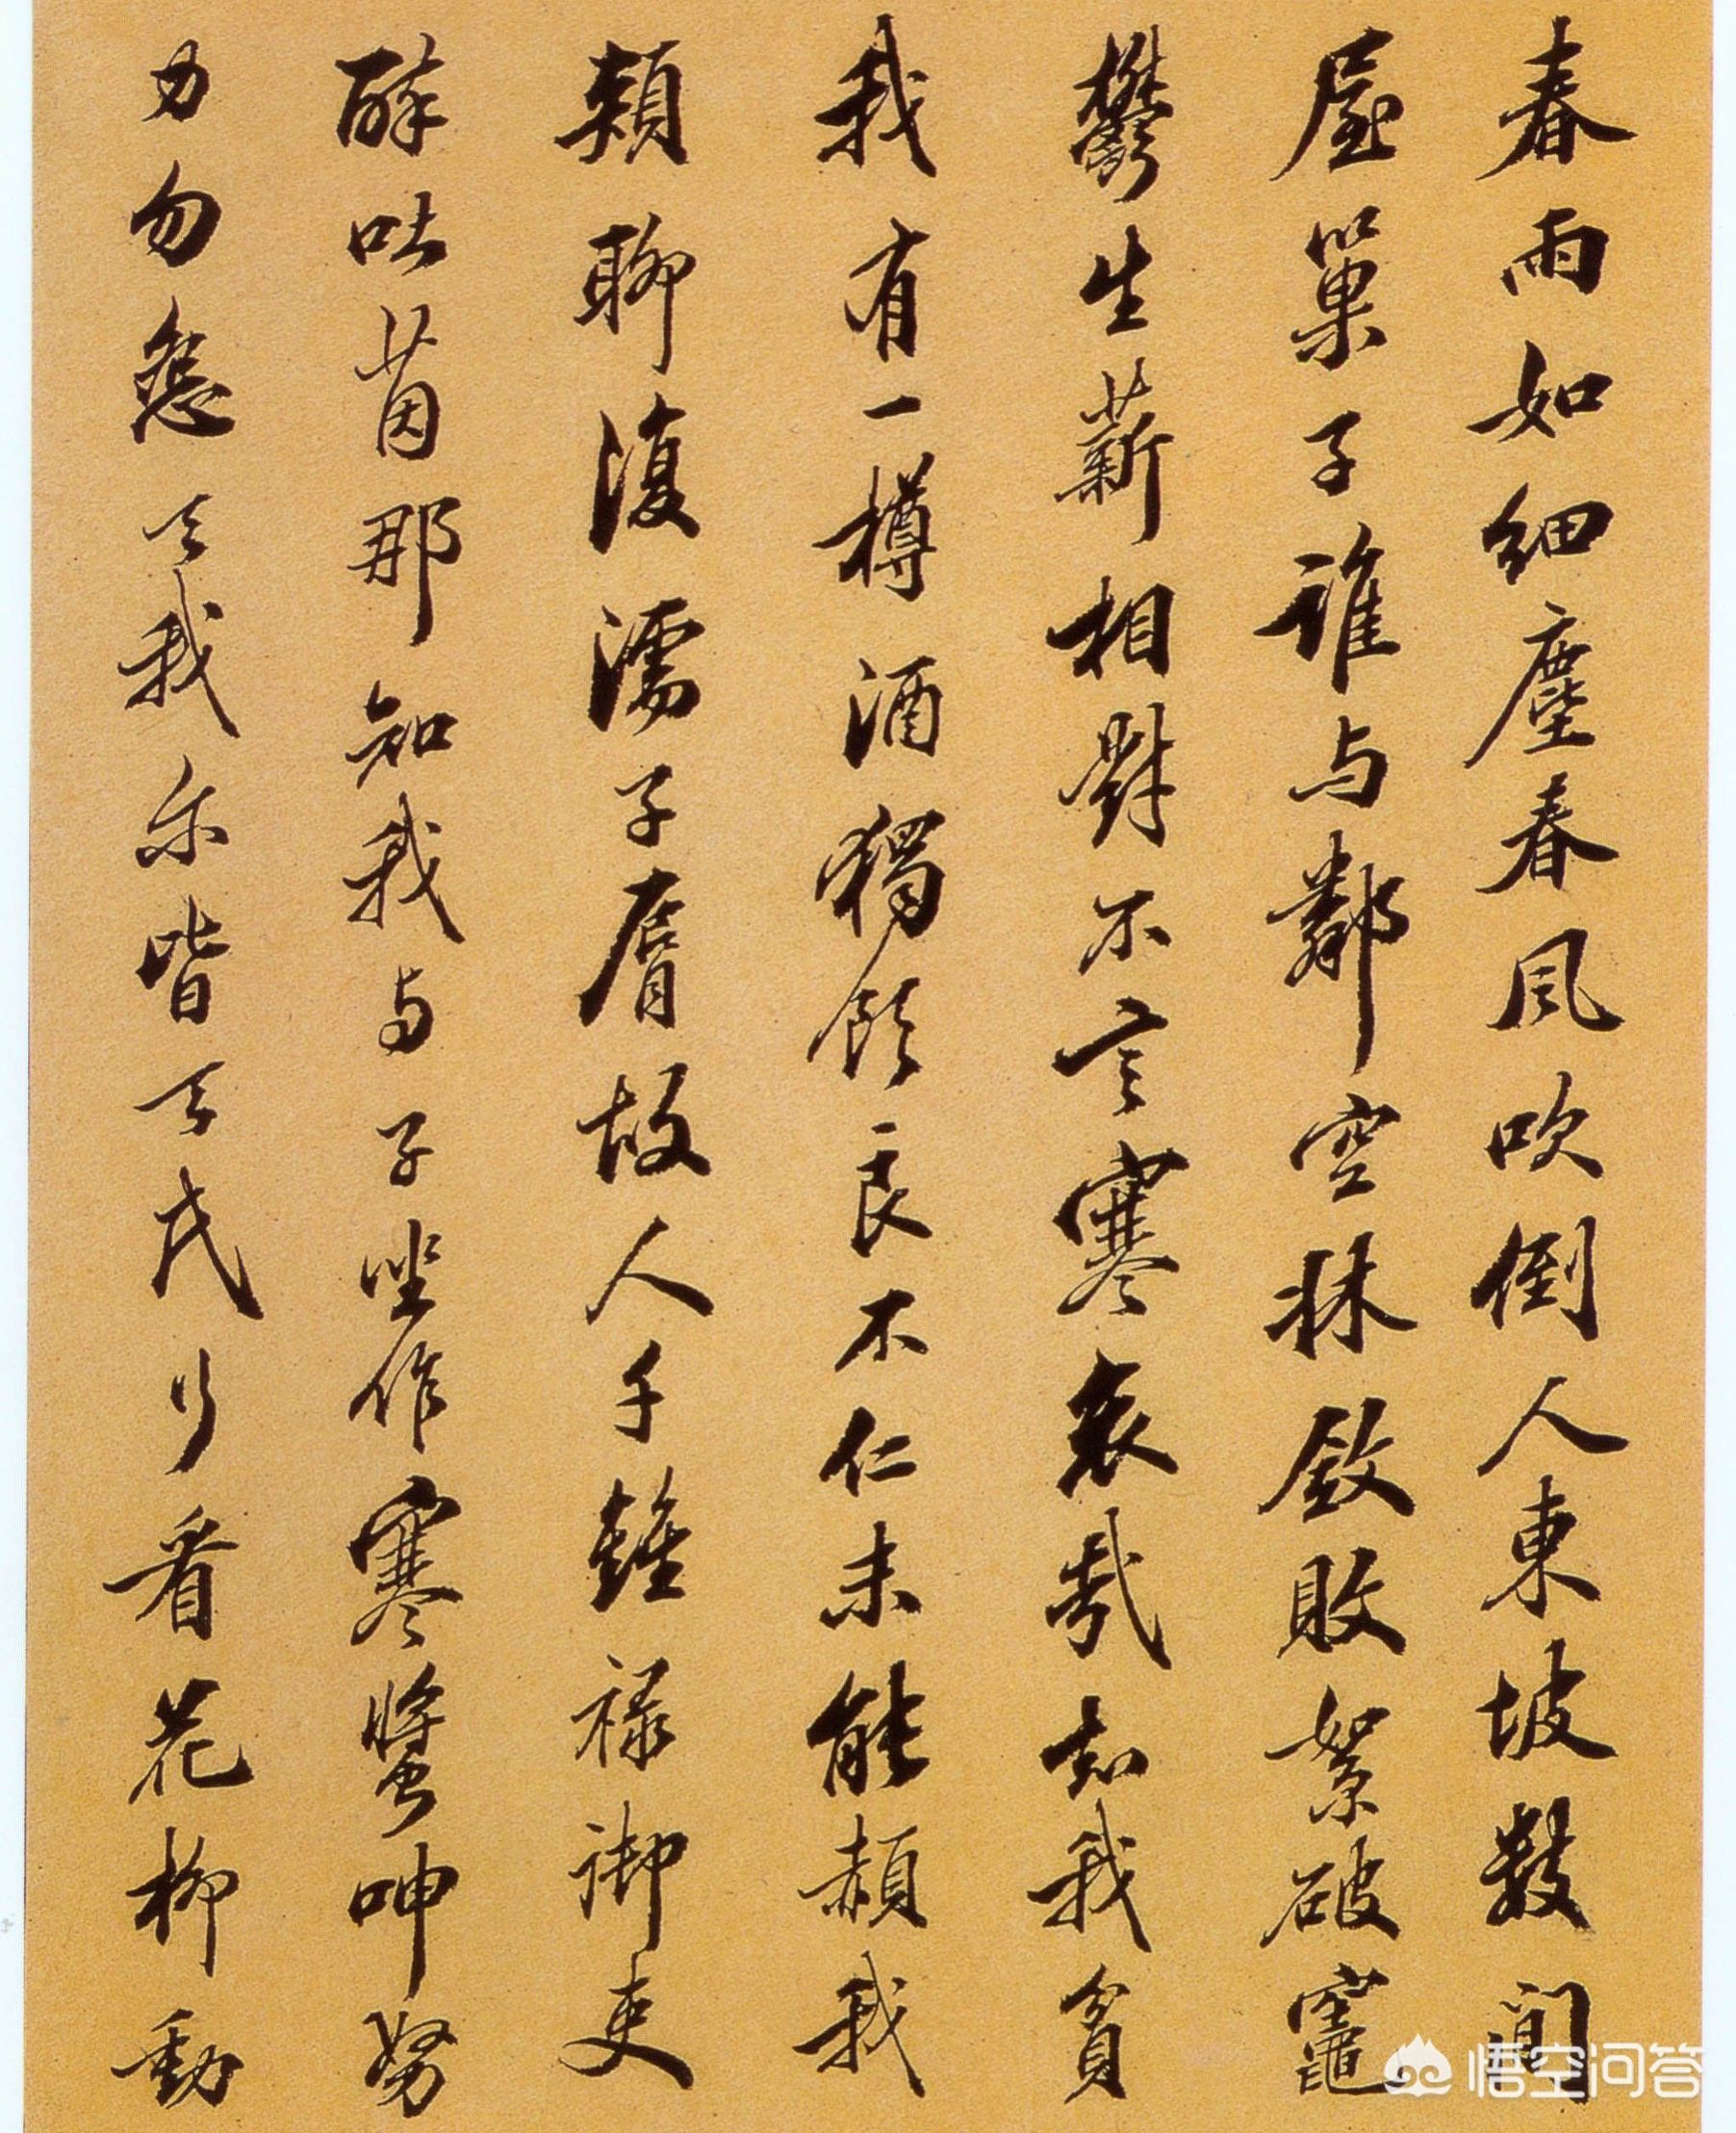 春雨如細塵春風吹倒人東坡數間
屋巢子誰与鄰空牀斂敗絮破竈
鬱生薪相對不言寒哀哉知我貧
我有一樽酒獨飲良不仁未能赬我
頰聊復濡子脣故人千鍾祿御吏
醉吐茵那知我与子坐作寒螿呻努
力勿怨天我尔皆天民行看花柳動
悟空问答